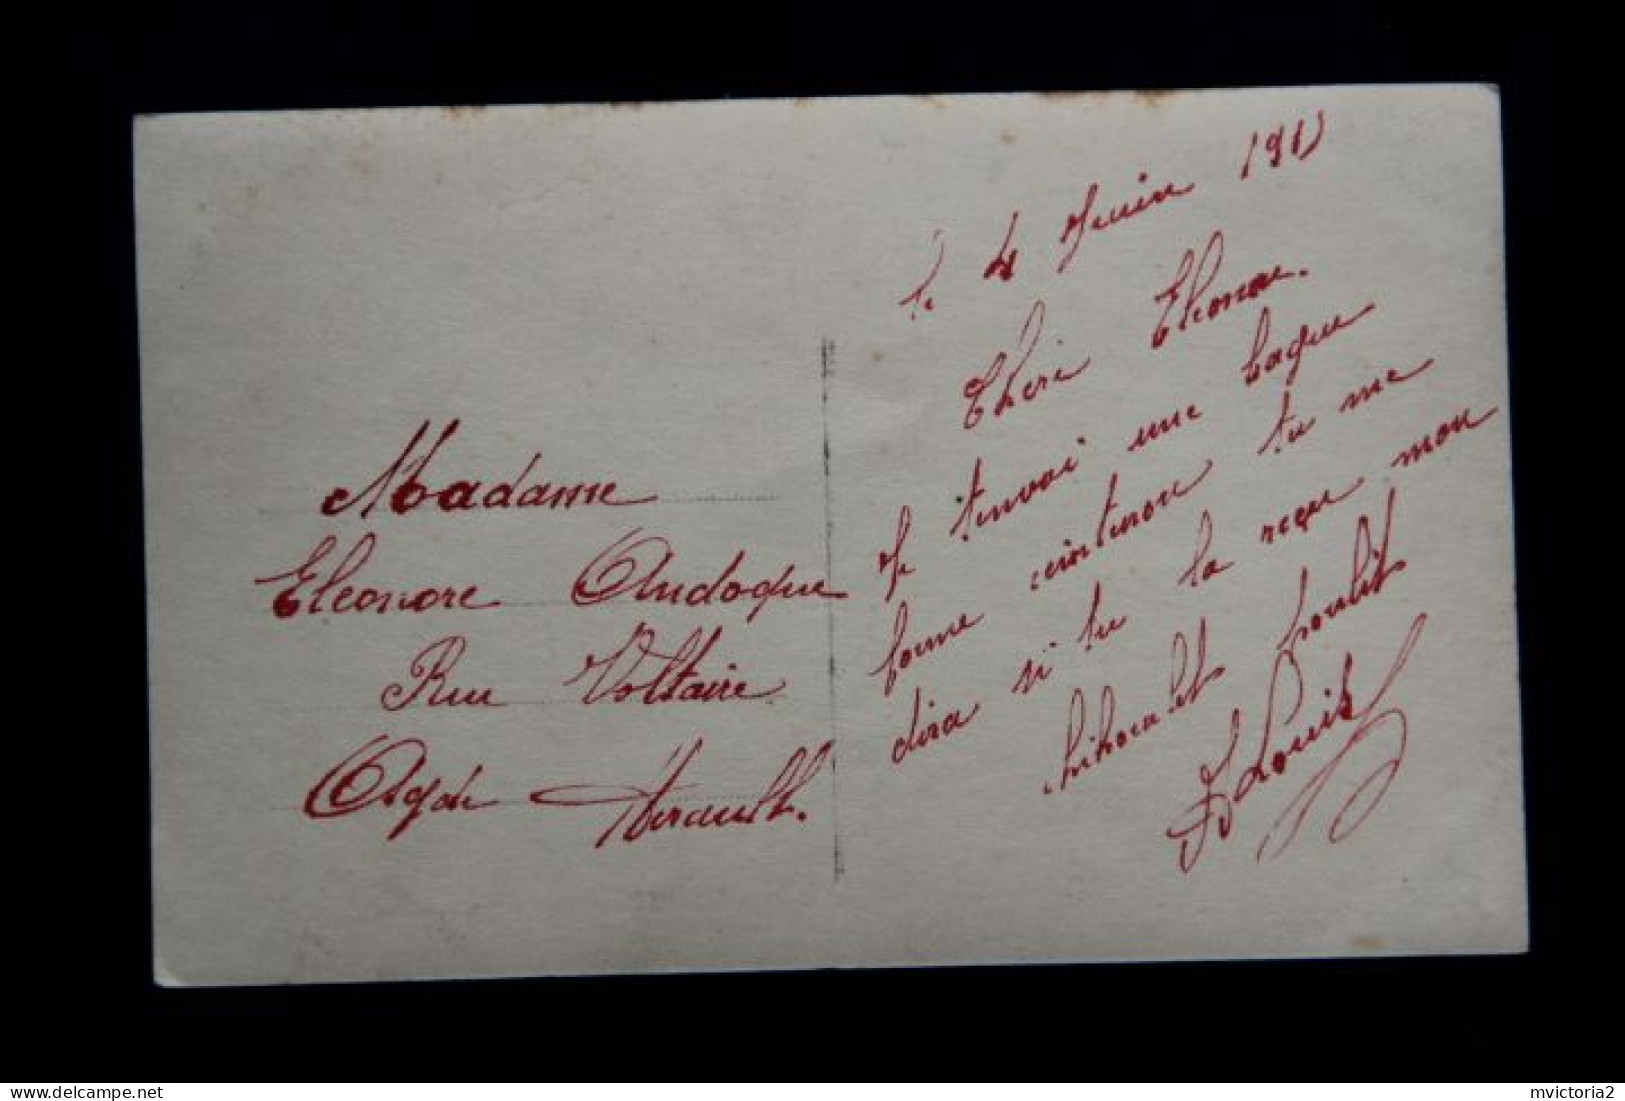 Madame
Eleonore Andoque
Rue Voltaire
Agde Hérault.
le 4 Juin 191
Cheri Eleonore.
Je t'envoi une bague
bonne tu me
dira si tu la reçu mon
poulit
Louis
delcampe.net
mvictoria2